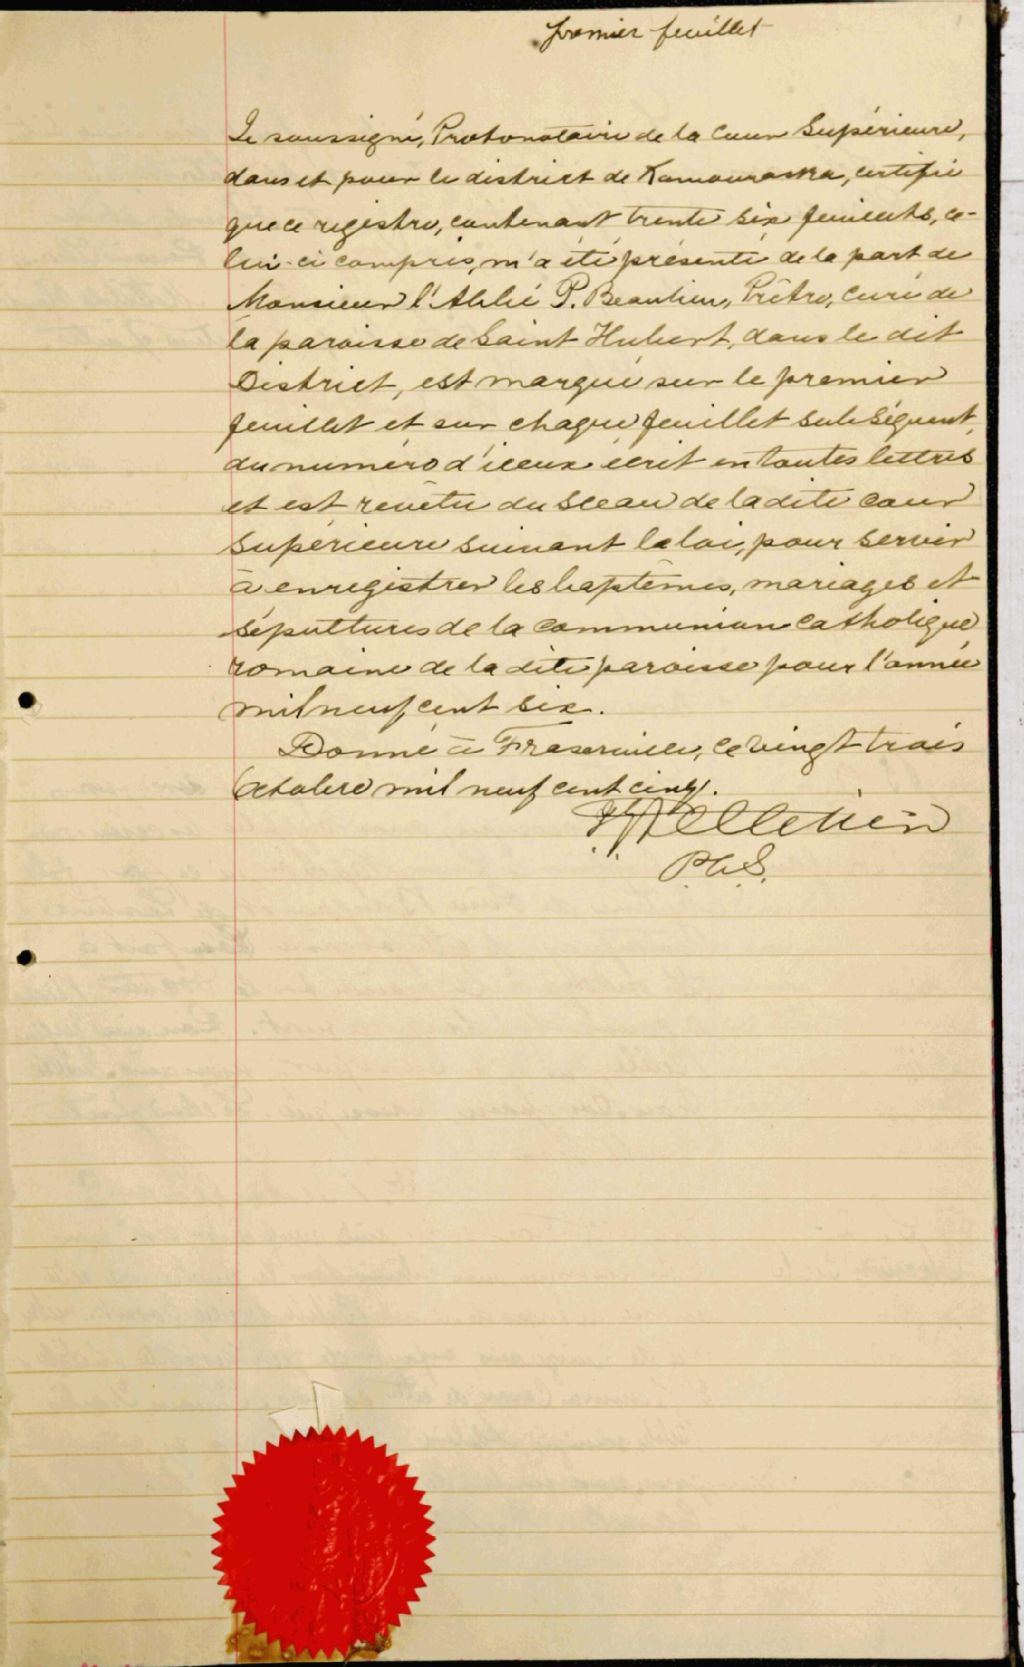 premier feuillet
Je soussigné, Protonotaire de la Cour Supérieure,
dans et pour le district de Kamouraska, certifie
que ce registre, contenant trente six feuillets, ce-
lui-ci compris, m'a été présenté de la part de
Monsieur l'Abbé P. Beaulieu, Prêtre, curé de
la paroisse de Saint Hubert, dans le dit
District, est marqué sur le premier
feuillet et sur chaque feuillet subséquent,
du numéro d'iceux écrit en toutes lettres
et est revêtu du sceau de la dite cour
supérieure suivant la loi, pour servir
à enregistrer les baptêmes, mariages et
sépultures de la communion catholique
romaine de la dite paroisse pour l'année
mil neuf cent six.
Donné à Fraserville, ce vingt trois
Octobre mil neuf cent cinq.
Pelletier
P.C.S.